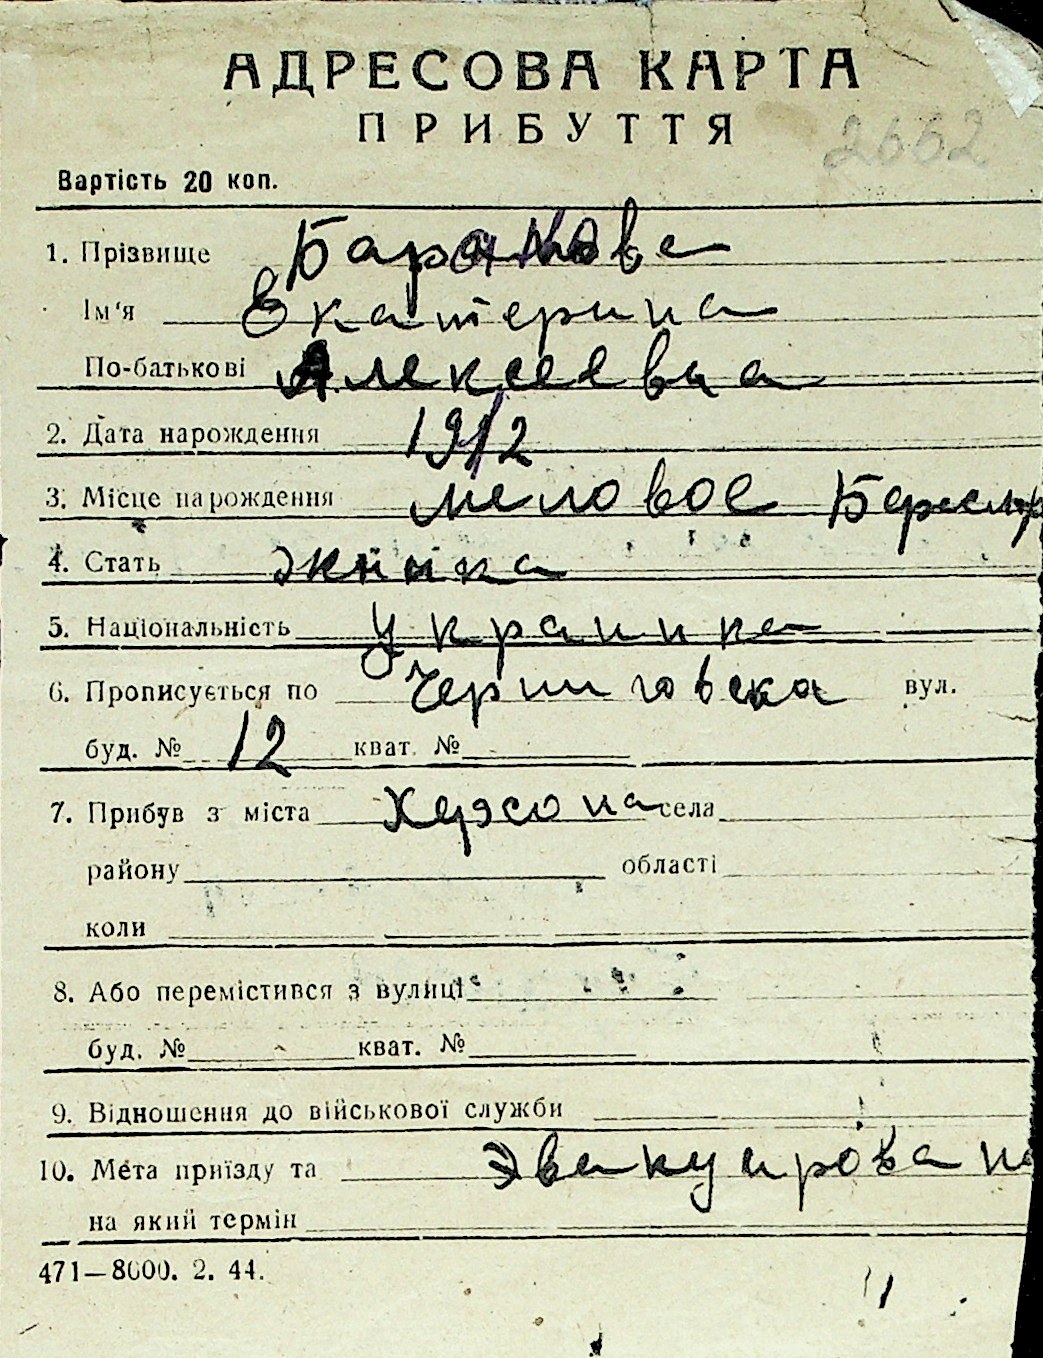 АДРЕСОВА КАРТА
ПРИБУТТЯ
2662
Вартість 20 коп.
1. Прізвище Баранова
Ім'я Екатерина
По-батькові Алексеевна
2. Дата народження 1912
3. Місце народження Меловое
4. Стать
5. Національність Украинка
6. Прописується по Черниговска вул.
буд. № 12 кват. №
7. Прибув з міста Херсона села
району області
коли
8. Або перемістився з вулиці
буд. № кват. №
9. Відношення до військової служби
10. Мета приїзду та Эвакуирована
на який термін
471—8000. 2. 44.